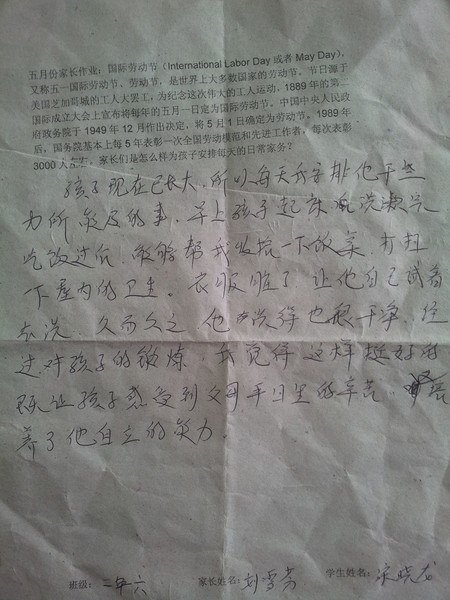 五月份家长作业：国际劳动节（International Labor Day 或者 May Day），
又称五一国际劳动节、劳动节，是世界上大多数国家的劳动节。节日源于
美国芝加哥城的工人大罢工，为纪念这次伟大的工人运动，1889年的第二
国际成立大会上宣布将每年的五月一日定为国际劳动节。中国中央人民政
府政务院于 1949 年 12 月作出决定，将 5 月 1 日确定为劳动节。1989 年
后，国务院基本上每 5 年表彰一次全国劳动模范和先进工作者，每次表彰
3000 人左右。家长们是怎么样为孩子安排每天的日常家务？
孩子现在已长大，所以每天我安排他干些
力所能及的事，早上孩子起来洗漱完
吃饭过后，能够帮我收拾一下饭桌 打扫
一下屋内的卫生。衣服脏了，让他自己试着
去洗 久而久之 他洗得也很干净，经
过对孩子的锻炼，我觉得这样挺好的
既让孩子感受到父母平日里的辛苦，培
养了他自立的能力。
班级：二年六 家长姓名：刘雪芳 学生姓名：晓龙